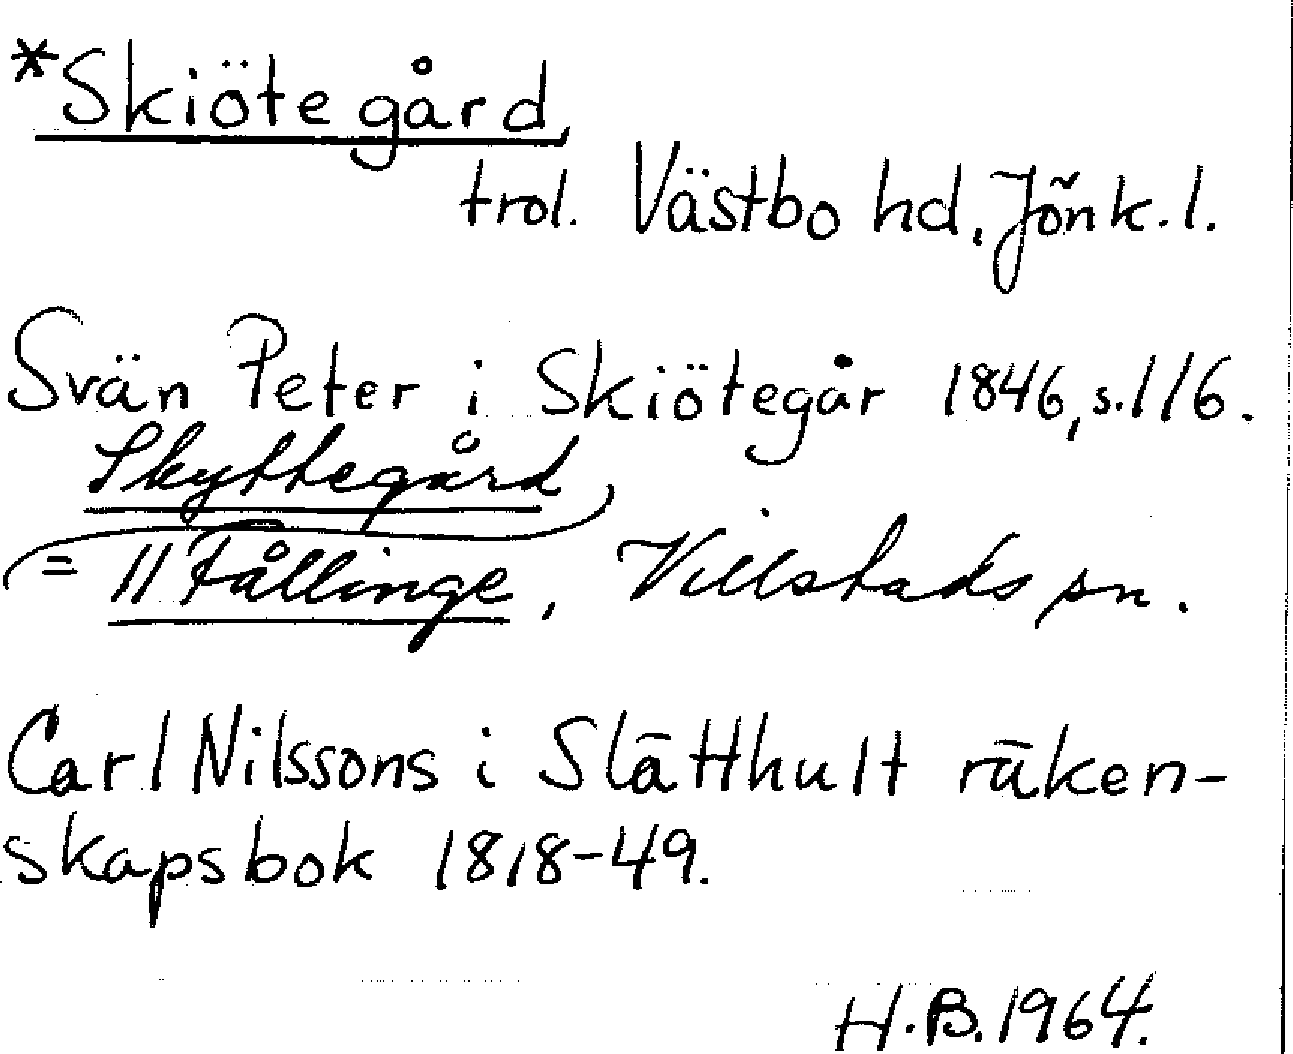 *Skiötegård,
trol. Västbo hd, Jönk. l.
Svän Peter i Skiötegår 1846, s. 116.
Skyttegård
= // Fållinge, Villstads sn.
Carl Nilssons i Slätthult räken-
skapsbok 1818-49.
H.B. 1964.